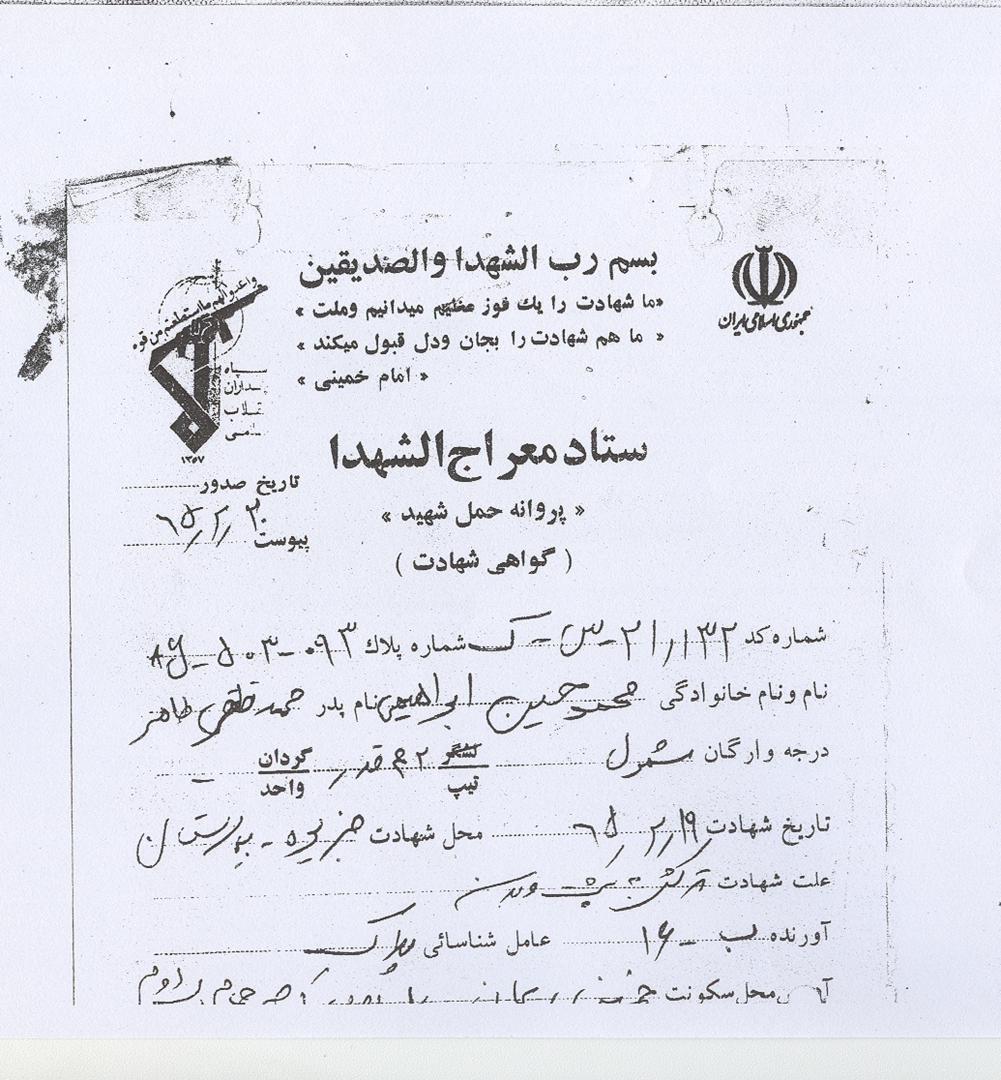 بسم رب الشهدا والصدیقین
«ما شهادت را یك فوز عظیم میدانیم وملت»
« ما هم شهادت را بجان ودل قبول میکند»
« امام خمینی »
جمهوری اسلامی ایران
واعدوا لهم ما استطعتم من قوة
سپاه
پاسداران
انقلاب
اسلامی
۱۳۵۷
ستاد معراج الشهدا
« پروانه حمل شهید »
( گواهی شهادت )
تاریخ صدور
۶۵/۲/۲۰
پیوست
شماره کد ۲۱/۱۳۲-س-ک شماره پلاك ۰۹۳-۵۰۳-
نام ونام خانوادگی محمد حسین ابراهیمی نام پدر
درجه وارگان لشگر گردان
تیپ واحد
تاریخ شهادت ۶۵/۲/۱۹ محل شهادت جزیره -
علت شهادت ترکش به
آورنده ب - ۱۶ عامل شناسائی پلاک
محل سکونت